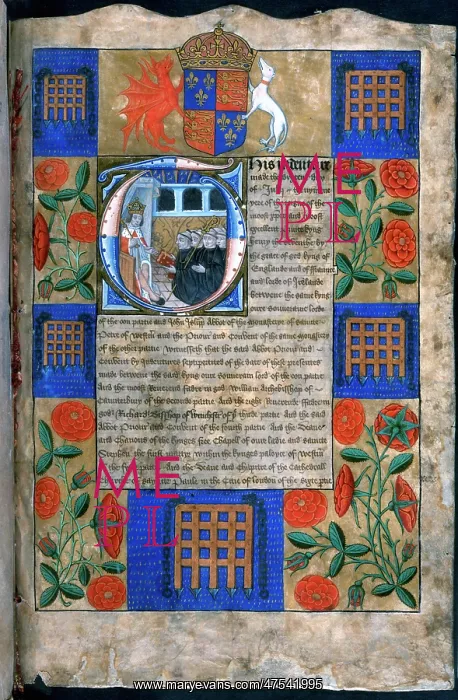 This indenture
made the day
of July
yere of the of the
moost and moost
excellent kyng
henry the by
the grace of god kyng of
Englande and of ffraunce
and lorde of Irlande
betwene the same kyng
oure souveraine lorde
of the oon partie and John Islipp Abbot of the monasterie of Saincte
Petre of Westm and the Priour and Convent of the same monasterie
of the other partie Witnesseth that the said Abbot Priour and
Convent by Indentures Septpertited of the date of these presentes
made betwene the said kyng oure souveraine lord of the oon partie
And the moost Reverend fader in god William Archebisshop of
Caunterbury of the seconde partie And the right Reverende fader in
god Richard Bisshop of Wynchestre of the thirde partie And the said
Abbot Priour and Convent of the fourth partie And the Deane
and Chanons of the kynges free Chapell of oure ladie and saincte
Stephen the first within the kynges paloys of Westm
of the partie And the Deane and Chapitre of the Cathedrall
of saincte paule in the Citie of london of the sixte partie
ME
PL
ME
PL
www.maryevans.com/47541995